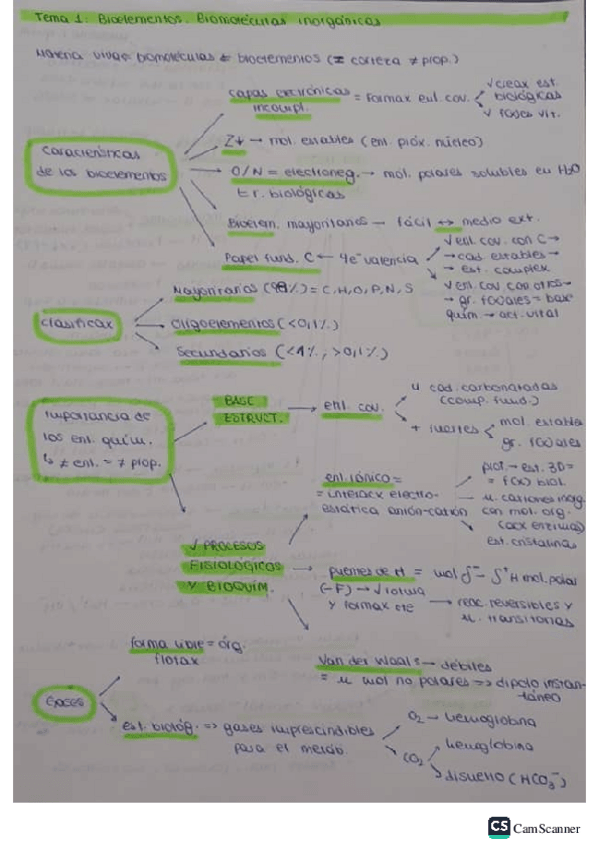 Tema 1: Bioelementos. Biomoléculas inorgánicas
Materia viva = biomoléculas ← bioelementos (≠ corteza ≠ prop.)
Características de los bioelementos
capas electrónicas incompl. = formar enl. cov.
√ crear est. biológicas
√ f(x)es vit.
Z↓ → mol. estables (enl. próx. núcleo)
O/N = electroneg. → mol. polares solubles en H2O
r. biológicas
Bioelem. mayoritarios — fácil ↔ medio ext.
Papel fund. C ← 4e⁻ valencia
√ enl. cov. con C →
→ cad. estables →
→ est. complex
√ enl. cov. con otros →
→ gr. f(x)ales = base
quím → act. vital
Clasificax
Mayoritarios (98%) = C, H, O, P, N, S
Oligoelementos (<0,1%)
Secundarios (<4%, >0,1%)
Importancia de los enl. quím.
↳ ≠ enl. = ≠ prop.
BASE ESTRUCT. → enl. cov.
u cad. carbonatadas (comp. fund.)
+ fuertes
mol. estables
gr. f(x)ales
√ PROCESOS FISIOLÓGICOS Y BIOQUÍM.
enl. iónico =
= interacx electro-
estática anión-catión
prot. → est. 3D =
= f(x) biol.
u. cationes inorg.
con mol. org.
(acx enzimas)
est. cristalinas
puentes de H = mol δ⁻ – δ⁺H mol. polar
(-F) → √ rotura
y formax cte → reac. reversibles y
u. transitorias
Van der Waals — débiles
= u mol no polares => dipolo instan-
táneo
Gases
forma libre = órg. flotax
est. biológ. => gases imprescindibles para el metab.
O2 → hemoglobina
CO2
hemoglobina
disuelto (HCO3⁻)
CS CamScanner